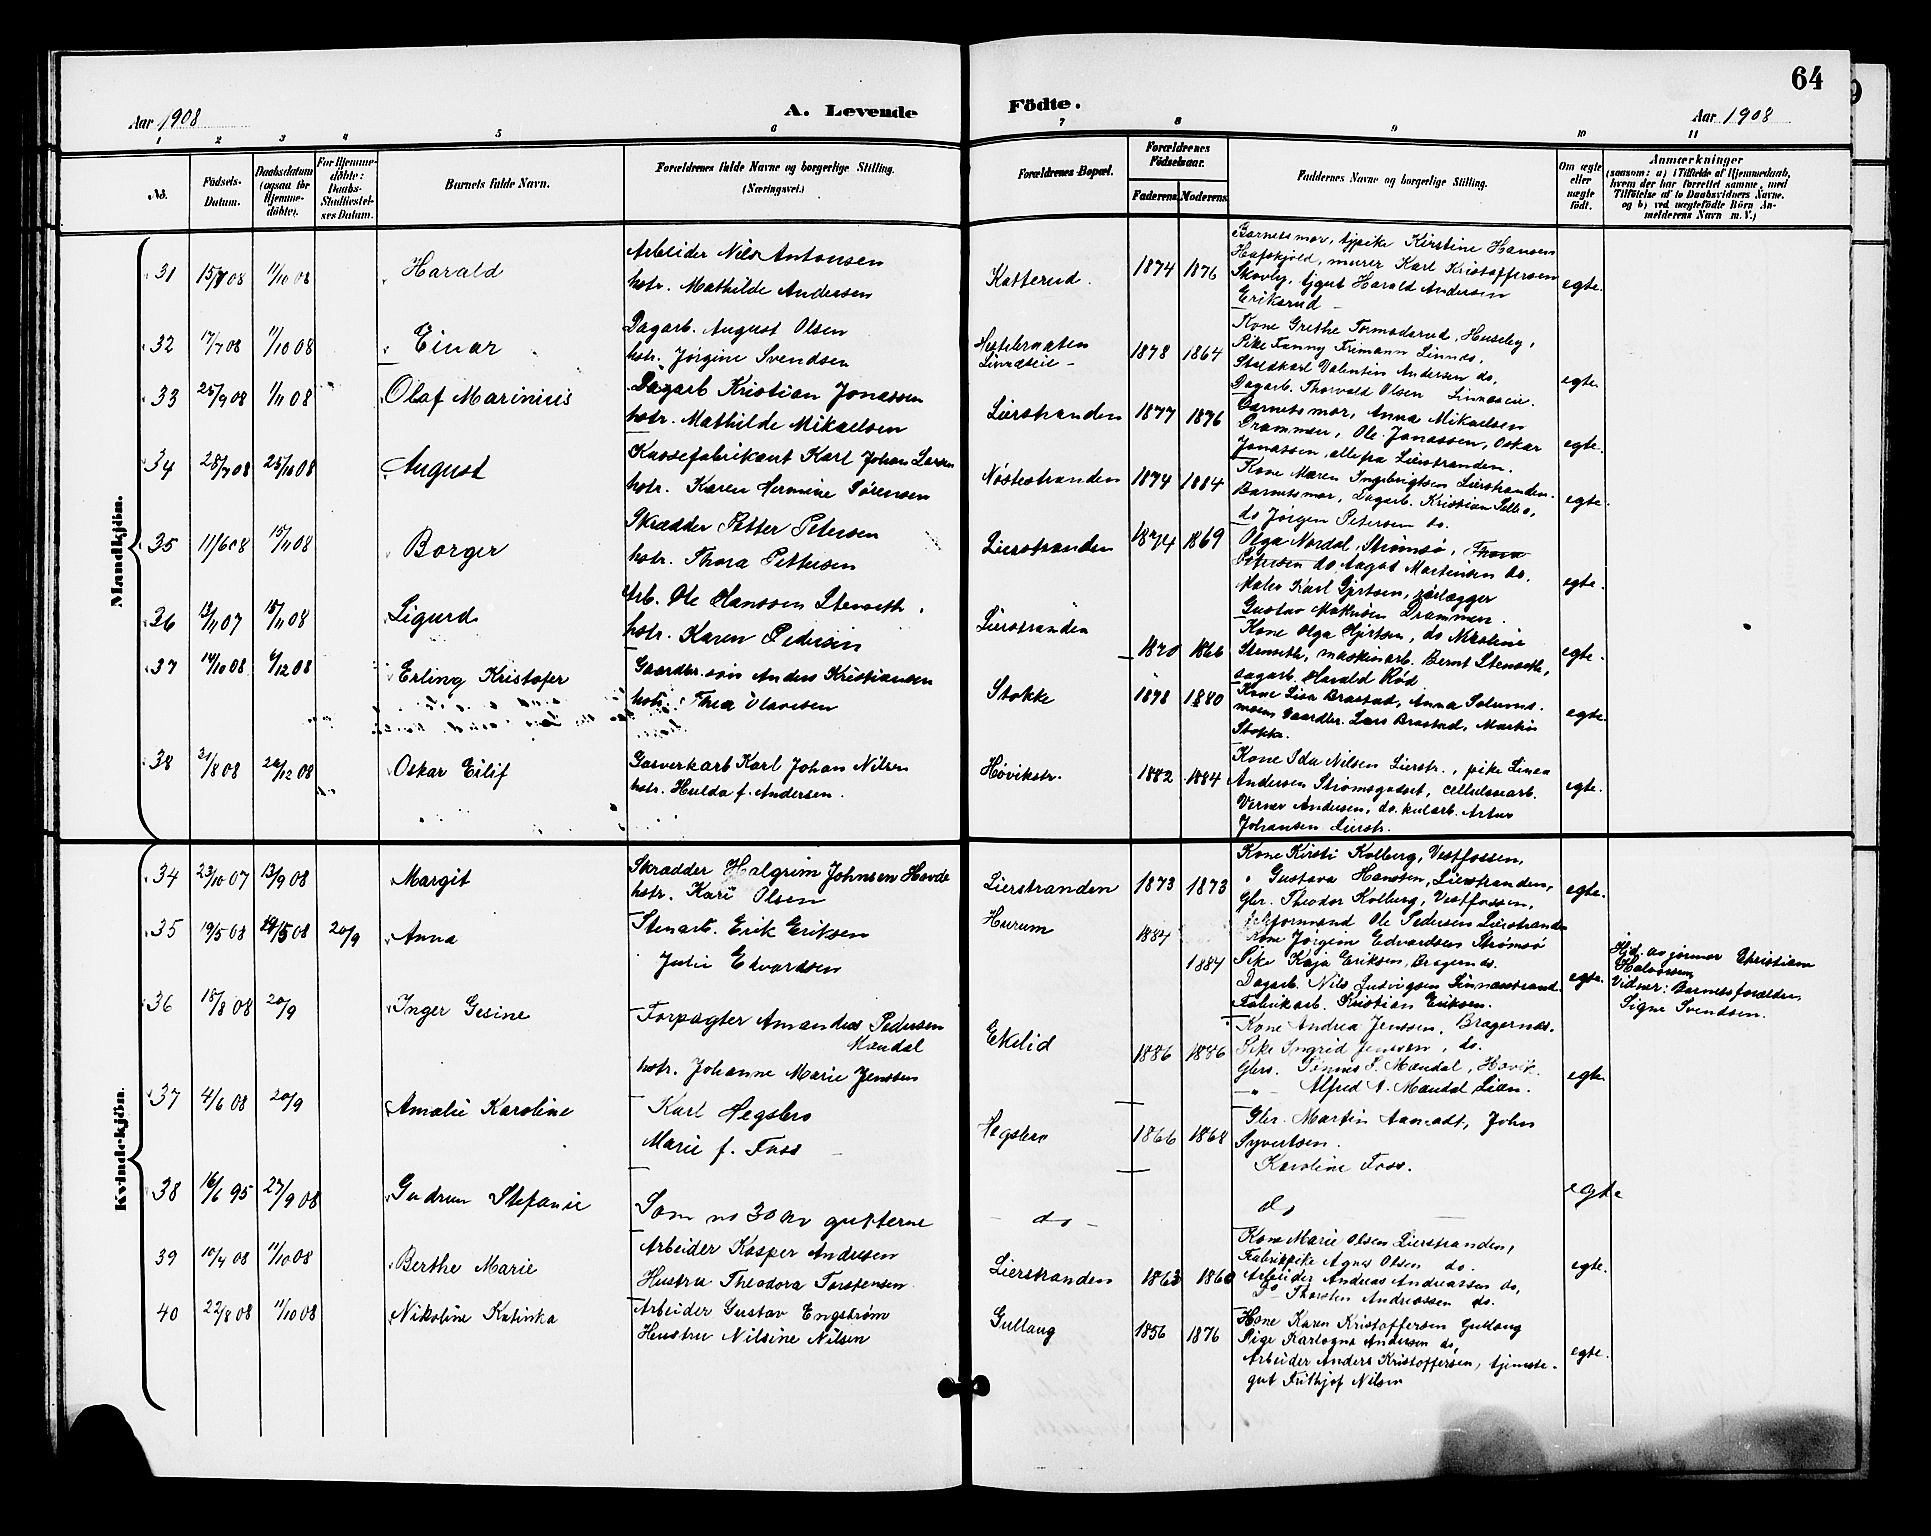 64
Aar 1908
A. Levende
Födte.
Aar 1908
1 2 3 4 5 6 7 8 9 10 11
No.
Födsels-Datum.
Daabsdatum (ogsaa for Hjemme-döbte).
For Hjemme-döbte: Daabs-Stadfæstel-ses Datum.
Barnets fulde Navn.
Forældrenes fulde Navne og borgerlige Stilling. (Næringsvei.)
Forældrenes Bopæl.
Forældrenes Födselsaar.
Faderens Moderens
Faddernes Navne og borgerlige Stilling.
Om ægte eller uægte födt.
Anmærkninger
(saasom: a) i Tilfælde af Hjemmedaab,
hvem der har forrettet samme, med
Tilföielse af to Daabsvidners Navne,
og b) ved uægtefödte Börn An-
melderens Navn m. V.)
Mandkjön.
31 15/8 08 11/10 08 Harald
Arbeider Nils Antonsen
hstr. Mathilde Andersen
Katterud. 1874 1876
Barnets mor, tjpike Kirstine Hansen
Hafskjold, murer Karl Kristoffersen
Skovby, tjgut Harald Andersen
Eriksrud
egte.
32 17/7 08 11/10 08 Einar
Dagarb. August Olsen
hstr. Jörgine Svendsen
Linnæseie 1878 1864
Kone Grethe Tormodsrud, Huseby,
Pike Fanny Frimann Linnes,
Staldkarl Valentin Andersen do,
Dagarb. Thorvald Olsen Linnæseie.
egte.
33 25/9 08 1/11 08 Olaf Marinius
Dagarb Kristian Jonassen
hstr. Mathilde Mikaelsen
Lierstranden 1877 1876
Barnets mor, Anna Mikaelsen
Drammen, Ole Jonassen, Oskar
Jonassen, alle fra Lierstranden.
egte.
34 28/7 08 25/10 08 August
Kassefabrikant Karl Johan Larsen
hstr. Karen Hermine Sørensen
Nøstestranden 1874 1884
Kone Maren Ingebrigtsen Lierstranden.
Barnets mor, Dagarb. Kristian Selbo,
do Jörgen Petersen do.
egte.
35 11/6 08 15/11 08 Borger
Skrædder Petter Petersen
hstr. Thora Pettersen
Lierstranden 1874 1869
Olga Nordal, Strømsø, Thora
Petersen do, Aagot Martinsen do.
Maler Karl Gjertsen, rörlægger
Gustav Drammen.
egte.
26 13/11 07 15/11 08 Sigurd
Arb. Ole Hanssen Stenseth.
hstr. Karen Pedersen
Lierstranden 1870 1866
Kone Olga Gjertsen, do Nikoline
Stenseth, maskinarb. Bernt Stenseth,
dagarb. Harald Rød
egte.
37 14/10 08 6/12 08 Erling Kristofer
Gaardbr. søn Anders Kristiansen
hstr. Thea Olavesen
Stokke 1878 1880
Kone Lisa Brastad, Anna
Gaardbr. Lars Brastad, Martin
Stokke.
egte.
38 21/8 08 26/12 08 Oskar Eilif
Gasverkarb Karl Johan Nilsen
hstr. Hulda f. Andersen.
Høvikstr. 1882 1884
Kone Ida Nilsen Lierstr., pike Linea
Andersen Strømsgodset, cellulosearb.
Verner Andersen, do. kularb. Artur
Johansen Lierstr.
egte.
Kvindekjön.
34 23/10 07 13/9 08 Margit
Skrædder Halgrim Johnsen Hovde
hstr. Kari Olsen
Lierstranden 1873 1873
Kone Kirsti Kolberg, Vestfossen,
" Gustava Hanssen, Lierstranden,
Gbr. Theodor Kolberg, Vestfossen,
formand Ole Pedersen Lierstranden
egte.
35 19/5 08 5 08 20/9 Anna
Stenarb. Erik Eriksen
Julie Edvardsen
Hurum 1884 1884
Kone Jørgine Edvardsen Strømsø
Pike Kaja Eriksen, Bragernes.
Dagarb. Nils Ludvigsen Linnæsstrand.
Fabrikarb. Kristian Eriksen.
egte.
Hjd. av jormor Christiane
Halvorsen
Vidner: Barnets forældre,
Signe Svendsen.
36 18/8 08 20/9 Inger Gesine
Forpagter Amandus Pedersen
Mændal
hstr. Johanne Marie Jenssen
Ekelid 1886 1886
Kone Andrea Jenssen, Bragernes.
Pike Ingrid Jenssen, do.
Gbrs. P. Mændal, Høvik.
" Alfred A. Mændal Lien.
egte.
37 4/6 08 20/9 Amalie Karoline
Karl Hegsbro
Marie f. Foss
Hegsbro 1866 1868
Gbr. Martin Aamodt, John
Syvertsen.
Karoline Foss.
38 16/6 95 27/9 08 Gudrun Stefanie
Som no 30 av gutterne
do
do
egte
39 10/4 08 11/10 08 Berthe Marie
Arbeider Kasper Andresen
Hustru Theodora Torstensen
Lierstranden 1863 1860
Kone Marie Olsen Lierstranden,
Fabrikpike Agnes Olsen do.
Arbeider Andreas Andreassen do,
Do Thorsten Andreassen do.
egte.
40 22/8 08 11/10 08 Nikoline Katinka
Arbeider Gustav Engstrøm
Hustru Nilsine Nilsen
Gullaug 1856 1876
Kone Karen Kristoffersen Gullaug
Pige Karlogna Andersen do,
Arbeider Anders Kristoffersen, tjeneste-
gut Frithjof Nilsen
egte.